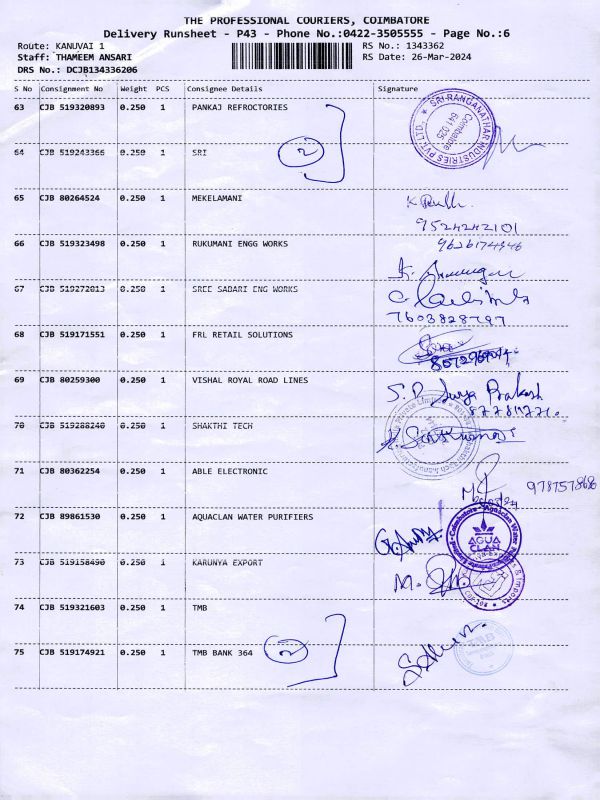 THE PROFESSIONAL COURIERS, COIMBATORE
Delivery Runsheet - P43 - Phone No.:0422-3505555 - Page No.:6
Route: KANUVAI 1 RS No.: 1343362
Staff: THAMEEM ANSARI RS Date: 26-Mar-2024
DRS No.: DCJB134336206
S No Consignment No Weight PCS Consignee Details Signature
63 CJB 519320893 0.250 1 PANKAJ REFROCTORIES
SRI RANGANATHAR INDUSTRIES PVT.LTD. Coimbatore 641 025
64 CJB 519243366 0.250 1 SRI 2
65 CJB 80264524 0.250 1 MEKELAMANI
9524242101
66 CJB 519323498 0.250 1 RUKUMANI ENGG WORKS
67 CJB 519272013 0.250 1 SREE SABARI ENG WORKS
7603828797
68 CJB 519171551 0.250 1 FRL RETAIL SOLUTIONS
69 CJB 80259300 0.250 1 VISHAL ROYAL ROAD LINES S.D. Surya Prakash
70 CJB 519288240 0.250 1 SHAKTHI TECH
71 CJB 80362254 0.250 1 ABLE ELECTRONIC
72 CJB 89861530 0.250 1 AQUACLAN WATER PURIFIERS
AQUA CLAN
73 CJB 519158490 0.250 1 KARUNYA EXPORT
74 CJB 519321603 0.250 1 TMB
75 CJB 519174921 0.250 1 TMB BANK 364 2